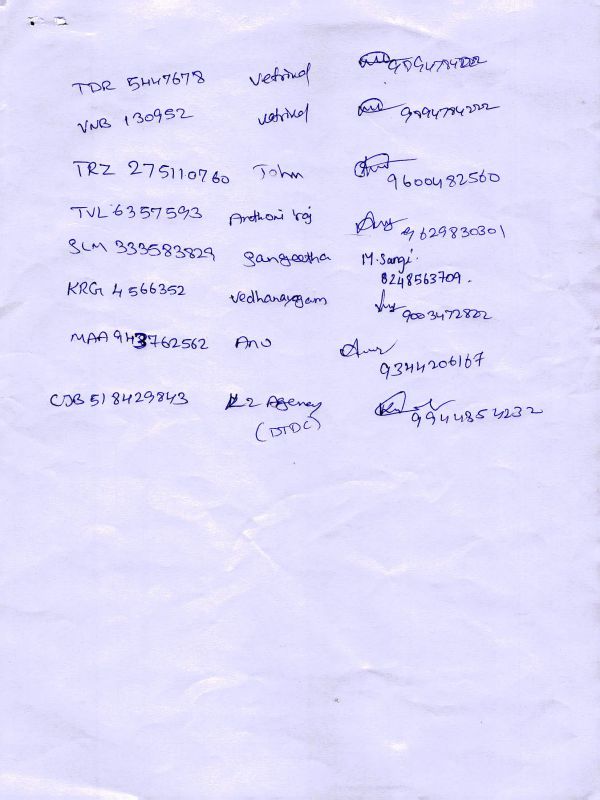 TDR 5447678 Vetrivel 9894784222
VNB 130952 Vetrivel 9894784222
TRZ 275110760 John 9600482560
TVL 6357593 Anthoni raj 9629830301
SLM 333583829 Sangeetha M. Sangi.
8248563709.
KRG 4566352 Vedhanayagam 9003472822
MAA 943762562 Anu 9344206167
CJB 518429843 K2 Agency 9944854232
(DTDC)